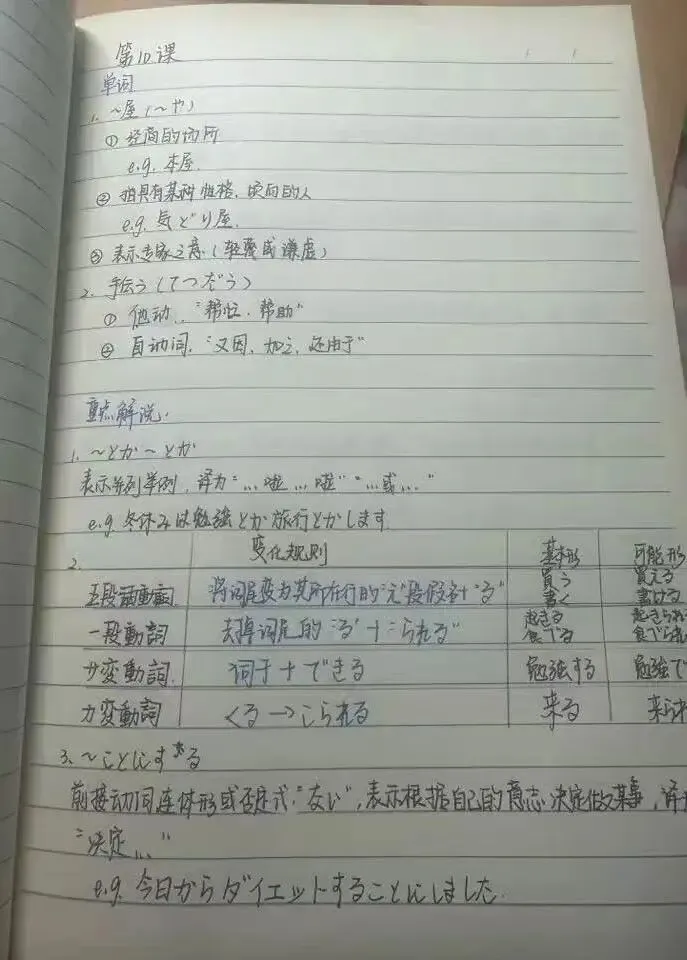 第10课
单词
1. ~屋(~や)
① 经商的场所
e.g. 本屋.
② 指具有某种性格、倾向的人
e.g. 気どり屋.
③ 表示专家之意(轻蔑或谦虚)
2. 手伝う(てつだう)
① 他动. "帮忙. 帮助"
② 自动词. "又因. 加之. 还由于"
重点解说.
1. ~とか~とか
表示并列举例. 译为"...啦...啦" "...或..."
e.g. 冬休みは勉強とか旅行とかします.
2. 变化规则 基本形 可能形
五段 動詞 将词尾变为其所在行的"え"段假名+"る" 買う 書く 買える 書ける
一段動詞 去掉词尾的"る"+"られる" 起きる 食べる 起きられ 食べられ
サ変動詞. 词干+できる 勉強する 勉強で
カ変動詞 くる→こられる 来る 来られ
3. ~ことにする
前接动词连体形或否定式"ない", 表示根据自己的意志决定做某事, 译
"决定..."
e.g. 今日からダイエットすることにしました.